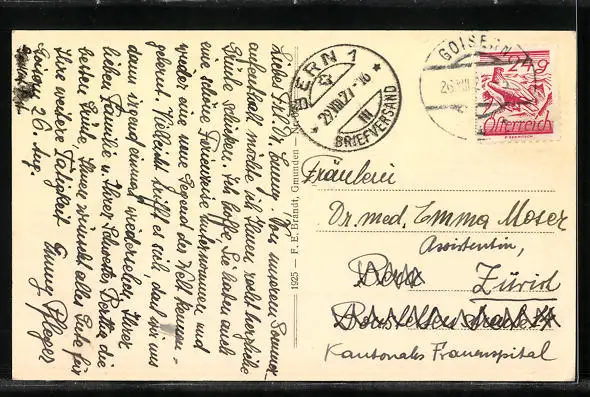 Liebes Frl. Dr. Emmy! Von unserem Sommer-
aufenthalt möchte ich Ihnen recht herzliche
Grüße schicken. Ich hoffe, Sie haben auch
eine schöne Ferienreise unternommen und
wieder eine neue Gegend der Welt kennen-
gelernt. Vielleicht trifft es sich, daß wir uns
dann irgend einmal wiedersehen. Ihrer
lieben Familie u. Ihrer Schwester Bertha die
besten Grüße, Ihnen wünscht alles Gute für
Ihre weitere Tätigkeit Emmy Pfleger
Goisern, 26. Aug.
1925 – F. E. Brandt, Gmunden –
BERN 1
27.VIII.27.–16
III
BRIEFVERSAND
GOISERN
26.VIII
24 g
Österreich
Fräulein
Dr. med. Emma Moser
Assistentin,
Bern Zürich
Kantonales Frauenspital